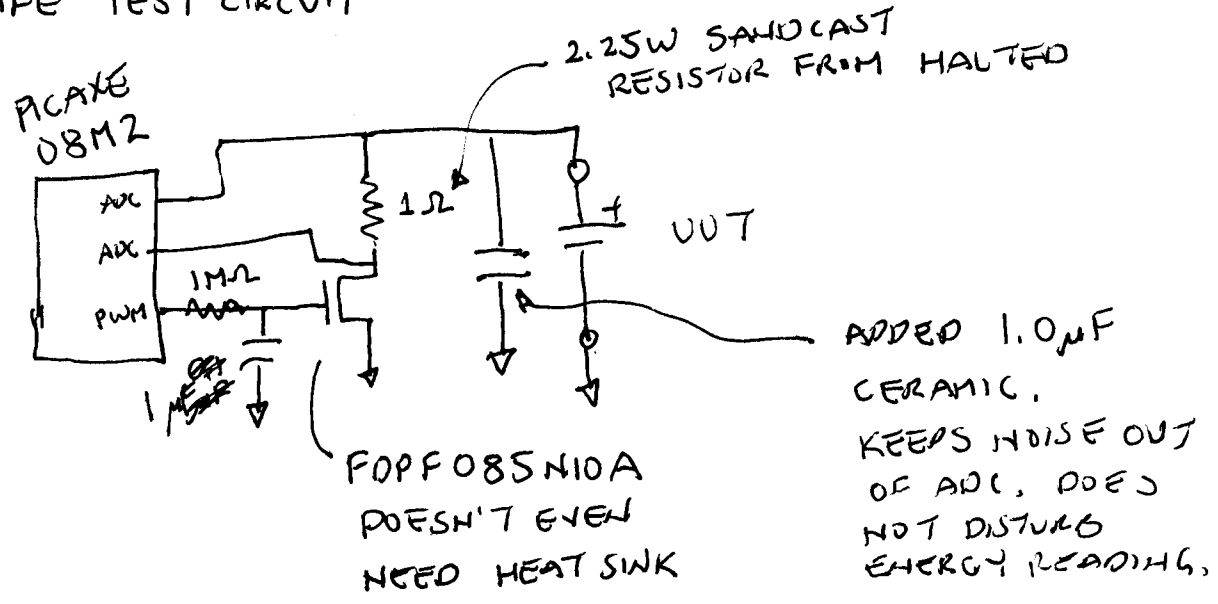 TEST CIRCUIT
2.25W SANDCAST
RESISTOR FROM HALTED
PICAXE
08M2
ADC
ADC
PWM
1MΩ
1Ω
+
UUT
1 µF
FDPF085N10A
DOESN'T EVEN
NEED HEAT SINK
ADDED 1.0µF
CERAMIC.
KEEPS NOISE OUT
OF ADC. DOES
NOT DISTURB
ENERGY READING.